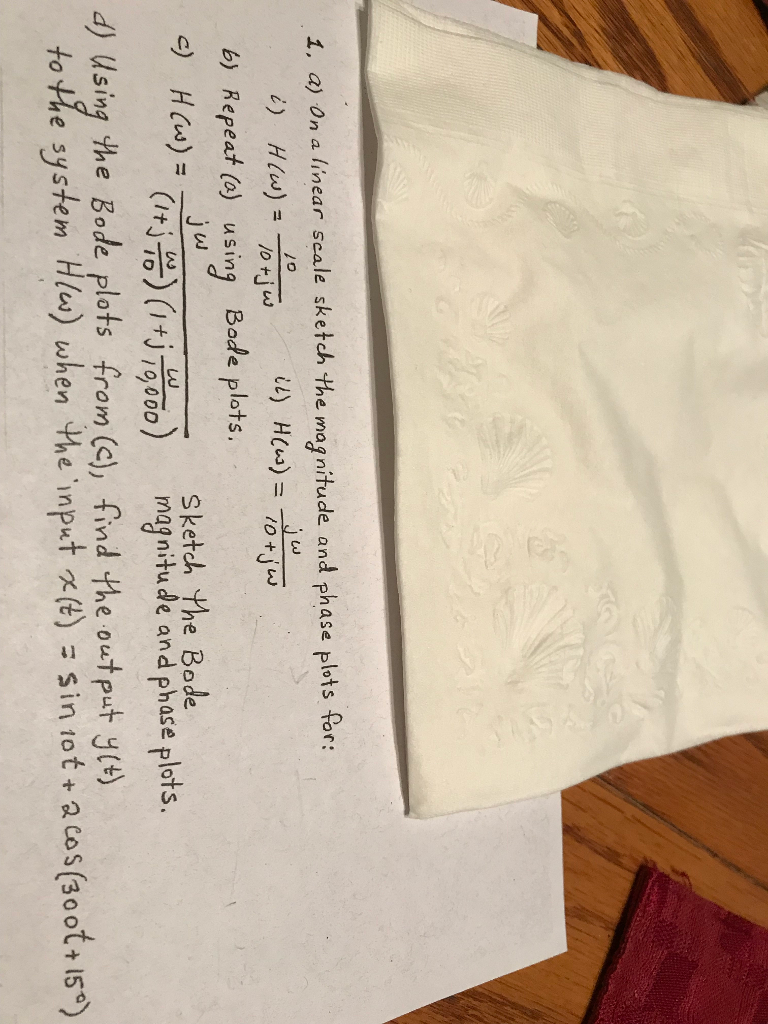 1. a) On a linear scale sketch the magnitude and phase plots for:
i) H(ω) = 10/(10+jω) ii) H(ω) = jω/(10+jω)
b) Repeat (a) using Bode plots.
c) H(ω) = jω/((1+j ω/10)(1+j ω/10,000)) Sketch the Bode
magnitude and phase plots.
d) Using the Bode plots from (c), find the output y(t)
to the system H(ω) when the input x(t) = sin 10t + 2 cos(300t+15°)